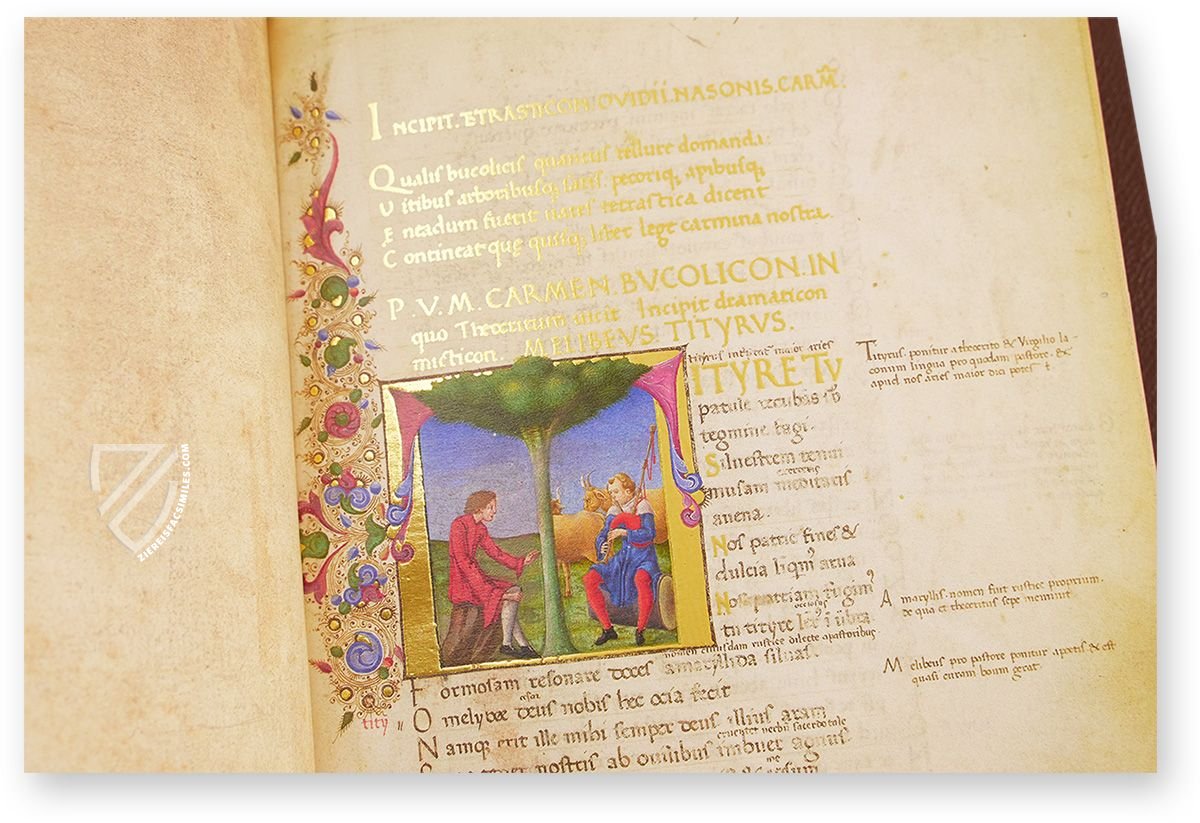 INCIPIT. TETRASTICON. OVIDII. NASONIS. CARM̅.
Qualis bucolicis quantus tellure domanda:
Vitibus arboribusq; satis pecoriq; apibusq;
Eneadum fuerit tetrastica dicent
Contineat quę quisq; liber lege carmina nostra.
P.V.M. CARMEN BVCOLICON. IN
quo Theocritum Incipit dramaticon
misticon. MELIBEVS: TITYRVS.
maior aries
TITYRE TV
patule recubans
tegmine fagi.
Siluestrem tenui
musam meditaris
auena.
Nos patrie fines &
dulcia arua
Nos patriam
ociosus
tu tityre
nomen cuiusdam rustice dilecte apastoribus
Formosam resonare doces amaryllida siluas.
O melybee deus nobis hec ocia fecit
Namq; erit ille mihi semper deus illius aram
nostris ab ouilibus imbuet agnus
tity
Tityrus. ponitur a theocrito & Virgilio la-
conum lingua pro quodam pastore. &
apud nos aries maior dici potest
Amaryllis. nomen fuit rustice proprium.
de qua et theocritus sepe meminit.
Melibeus pro pastore ponitur apoetis & est
quasi curam boum gerat.
ZIEREISFACSIMILES.COM